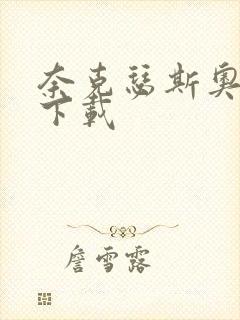 奈克瑟斯奥
下载
詹雪露